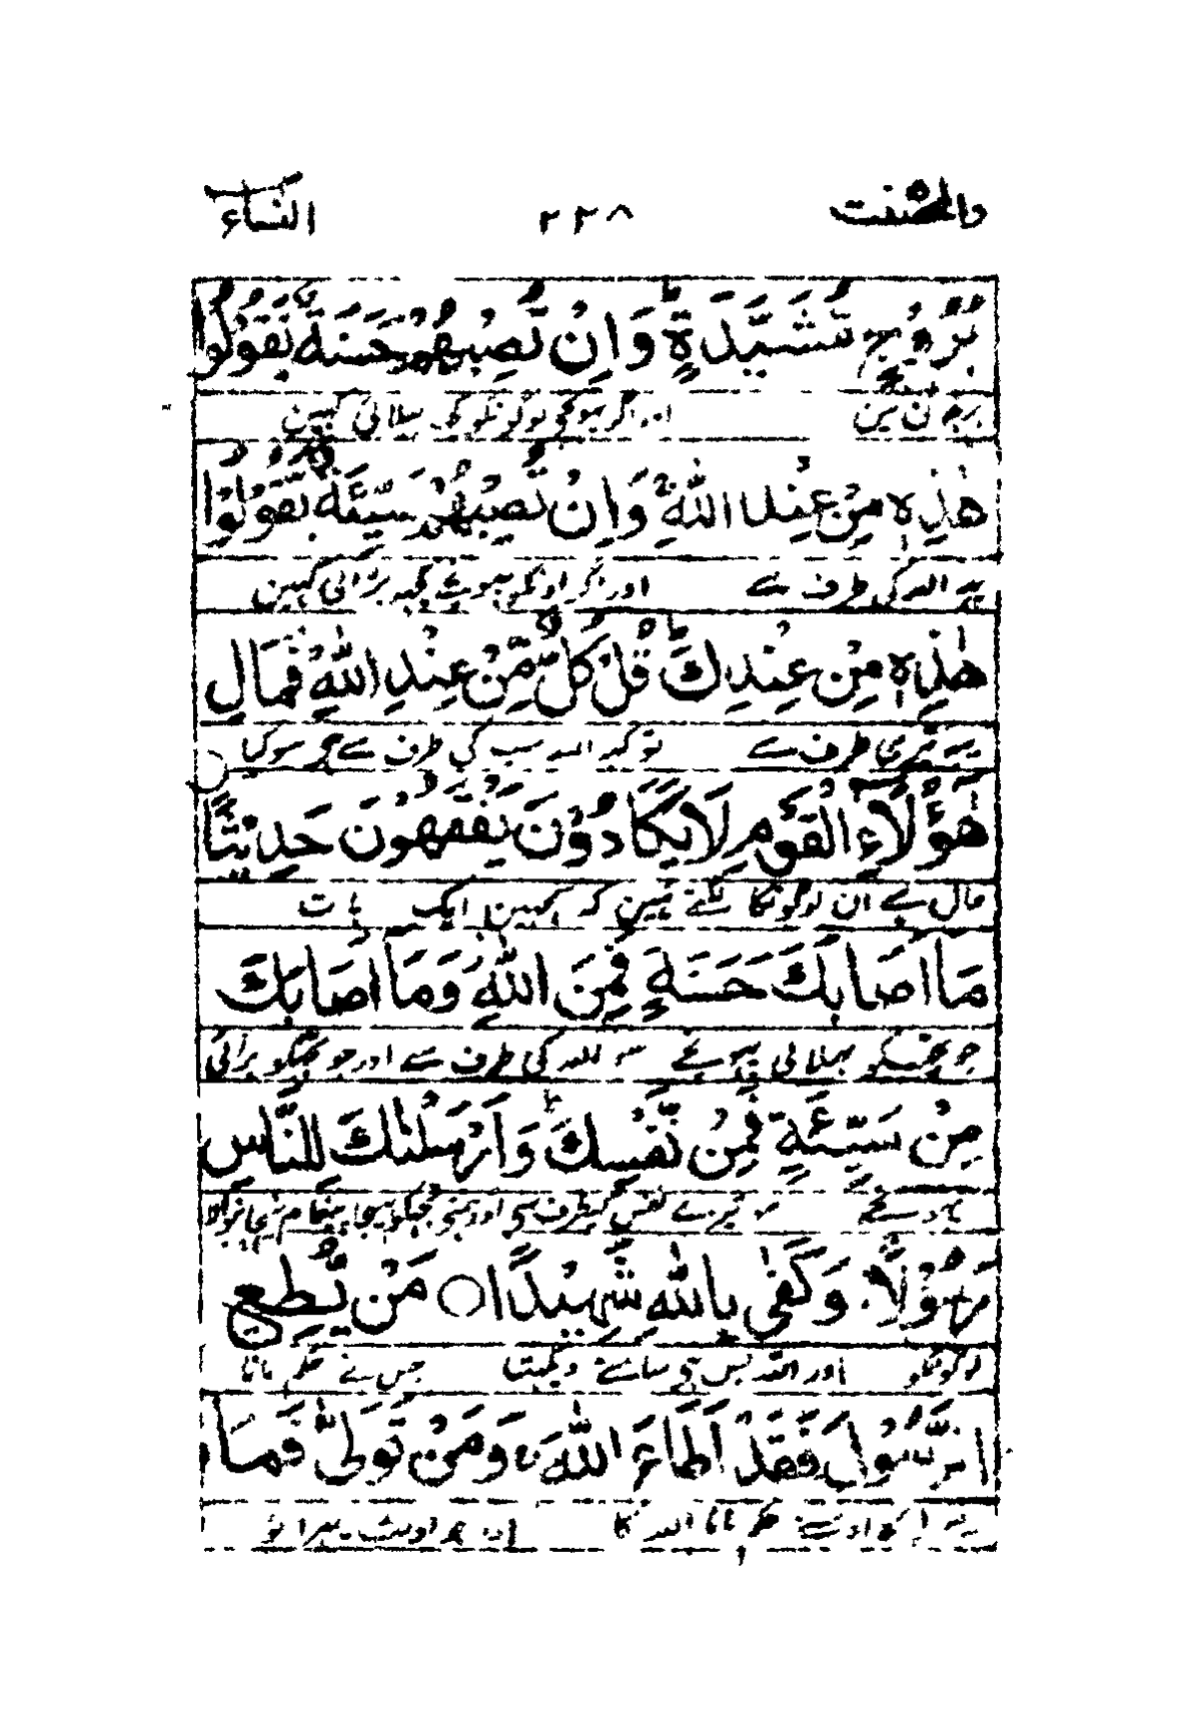 والمحصنت ۲۲۸ النساء
بُرُوْجٍ مُّشَيَّدَةٍ ؕ وَاِنْ تُصِبْهُمْ حَسَنَةٌ يَّقُوْلُوْا
برجون مین اور اگر پہونچے لوگونکو کچھ بھلائی کہین
هٰذِهٖ مِنْ عِنْدِ اللّٰهِ ۚ وَاِنْ تُصِبْهُمْ سَيِّئَةٌ يَّقُوْلُوْا
یہ اللہ کی طرف سے اور اگر اونکو پہونچے کچھ برائی کہین
هٰذِهٖ مِنْ عِنْدِكَ ؕ قُلْ كُلٌّ مِّنْ عِنْدِ اللّٰهِ ؕ فَمَالِ
یہ تیری طرف سے تو کہہ سب اللہ کی طرف سے ہے سو کیا
هٰٓؤُلَآءِ الْقَوْمِ لَا يَكَادُوْنَ يَفْقَهُوْنَ حَدِيْثًا
حال ہے ان لوگونکا لگتے نہین کہ سمجہین ایک بات
مَاۤ اَصَابَكَ حَسَنَةٍ فَمِنَ اللّٰهِ ۫ وَمَاۤ اَصَابَكَ
جو تجھکو بھلائی پہونچے سو اللہ کی طرف سے اور جو تجھکو برائی
مِنْ سَيِّئَةٍ فَمِنْ نَّفْسِكَ ؕ وَاَرْسَلْنٰكَ لِلنَّاسِ
پہونچے سو تیرے نفس کیطرف سی اور ہمنے تجھکو بہیجا پیغام پہنچانیوالا
رَسُوْلًا ؕ وَكَفٰى بِاللّٰهِ شَهِيْدًا ○ مَنْ يُّطِعِ
لوگونکو اور اللہ بس ہی سامنے دیکہتا جس نے حکم مانا
الرَّسُوْلَ فَقَدْ اَطَاعَ اللّٰهَ ۚ وَمَنْ تَوَلّٰى فَمَاۤ
اوسنے حکم مانا اللہ کا اور جو اولٹا پھرا تو